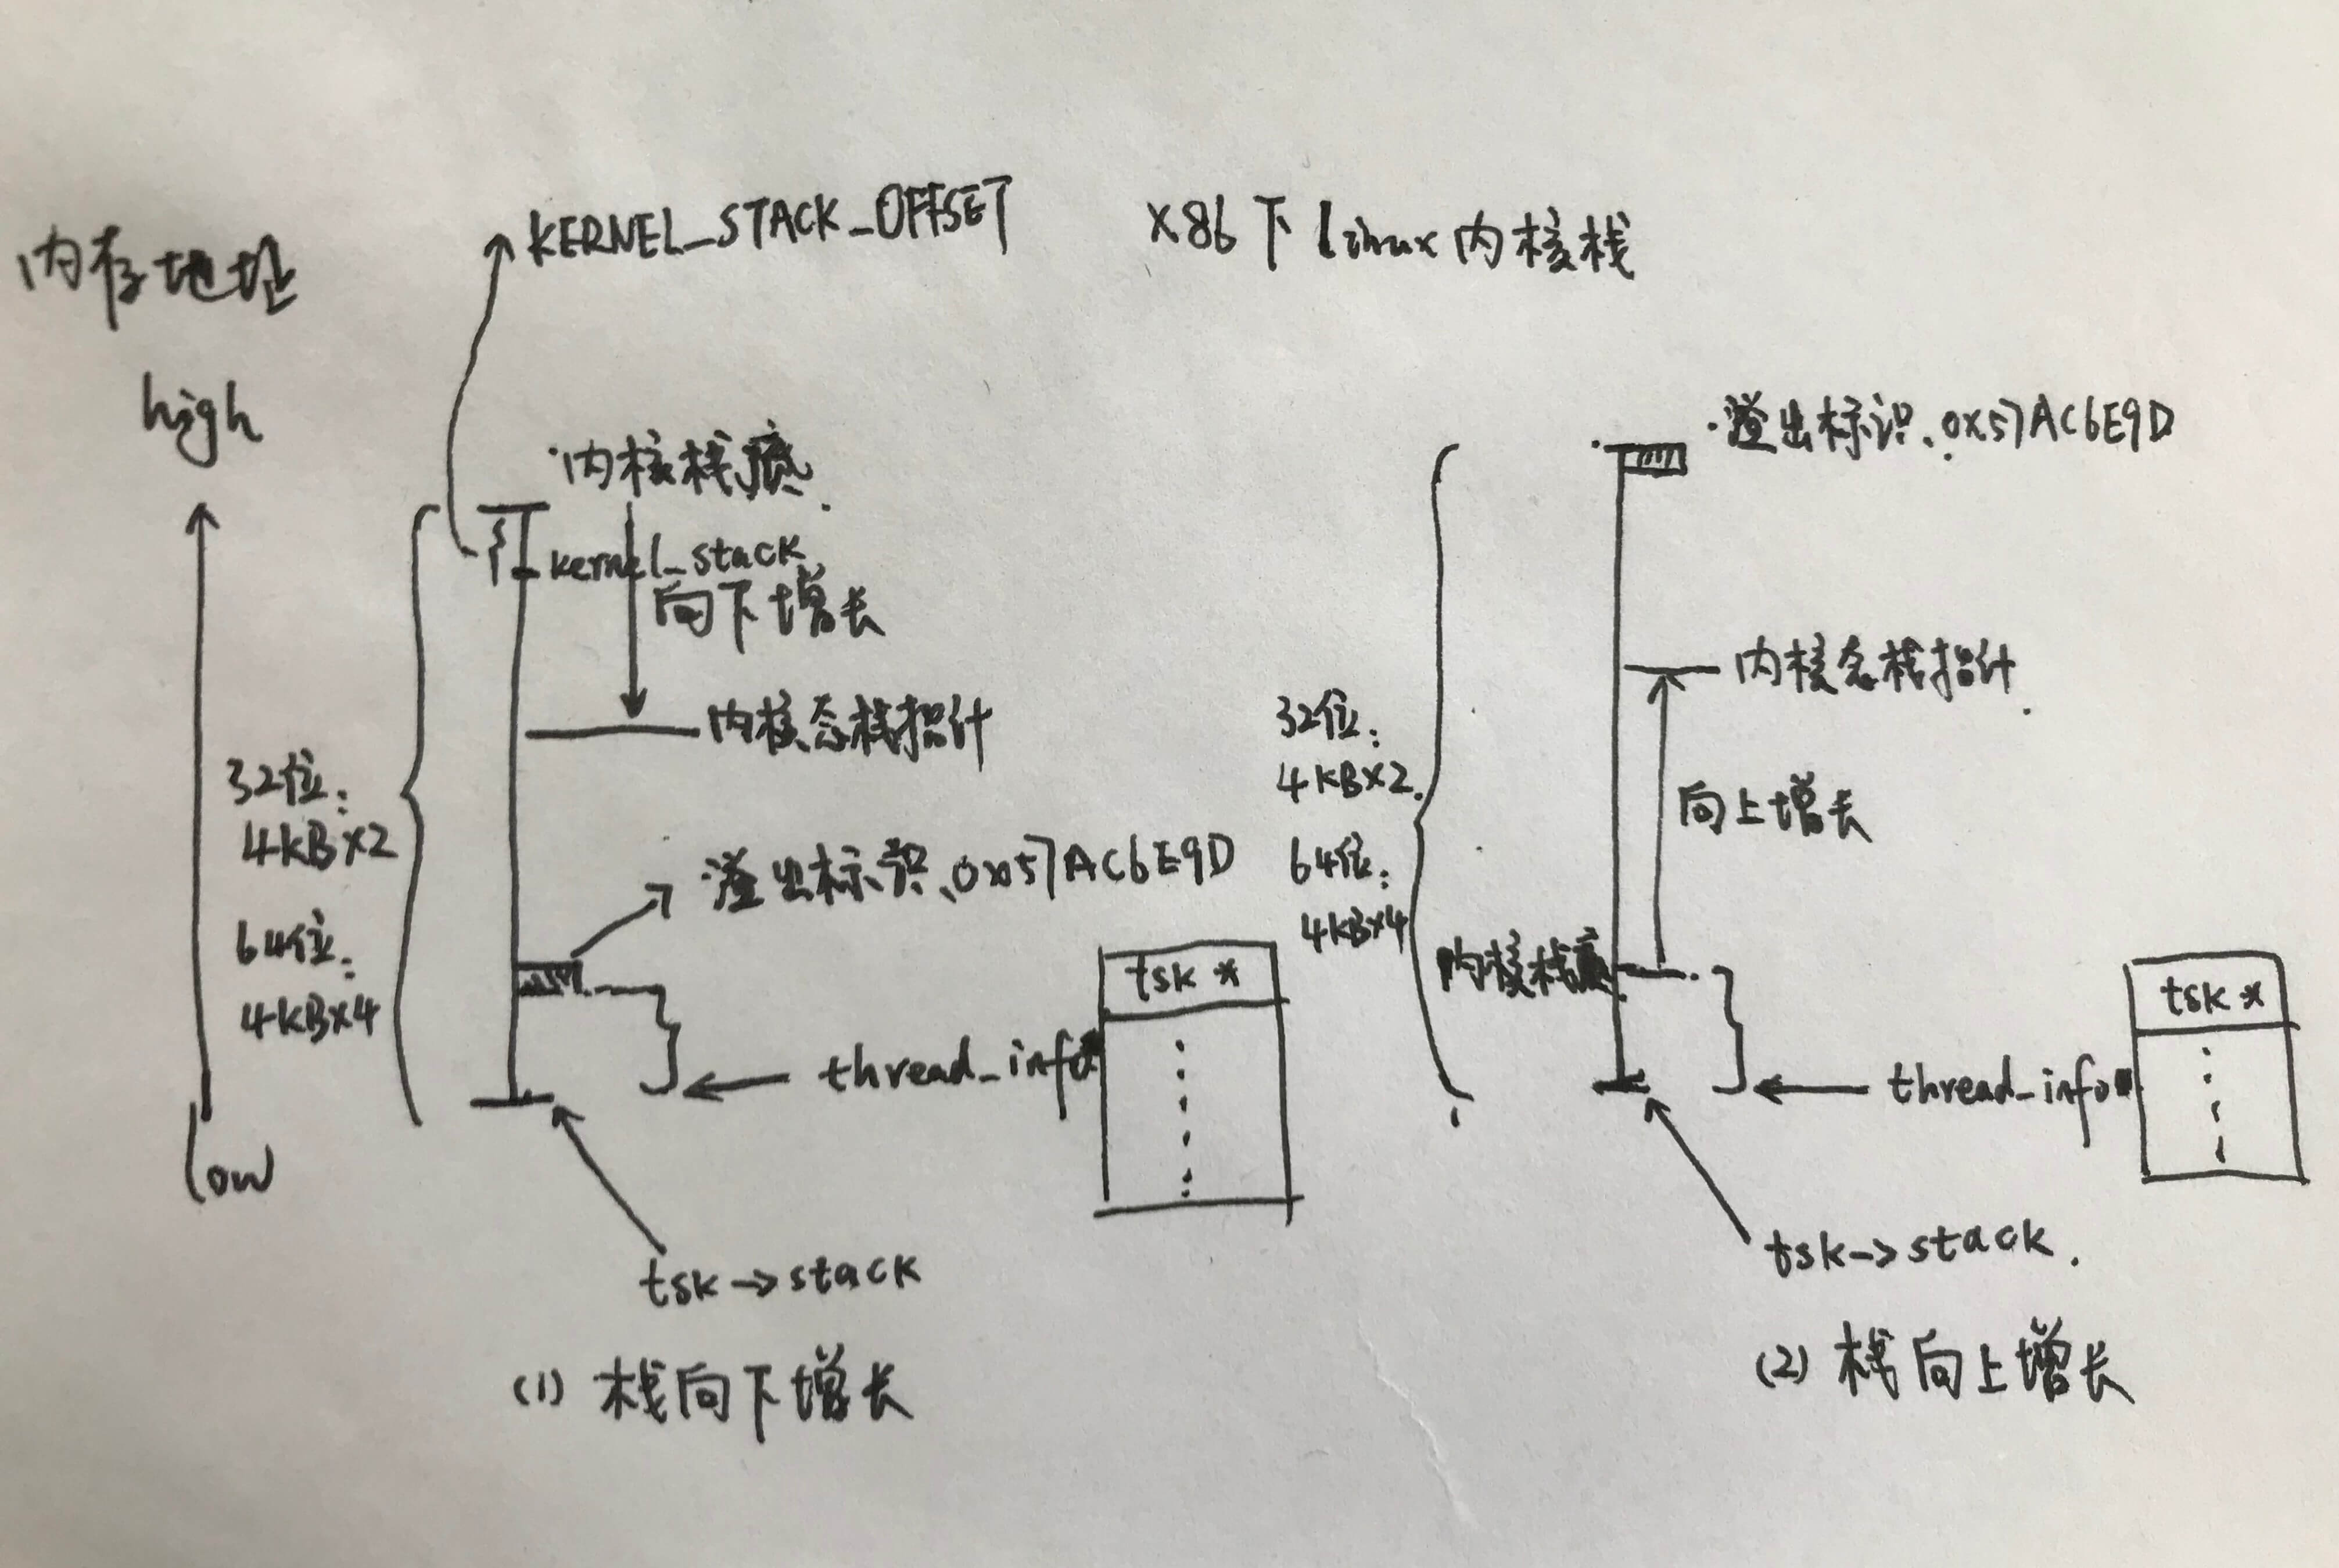 内存地址
high
low
KERNEL_STACK_OFFSET
x86下linux内核栈
内核栈底
kernel_stack
向下增长
内核态栈指针
32位:
4KB×2
64位:
4KB×4
溢出标识、0x57AC6E9D
tsk *
thread_info
tsk->stack
(1) 栈向下增长
溢出标识、0x57AC6E9D
内核态栈指针
32位:
4KB×2.
向上增长
64位:
4KB×4
内核栈底
tsk *
thread_info
tsk->stack.
(2) 栈向上增长